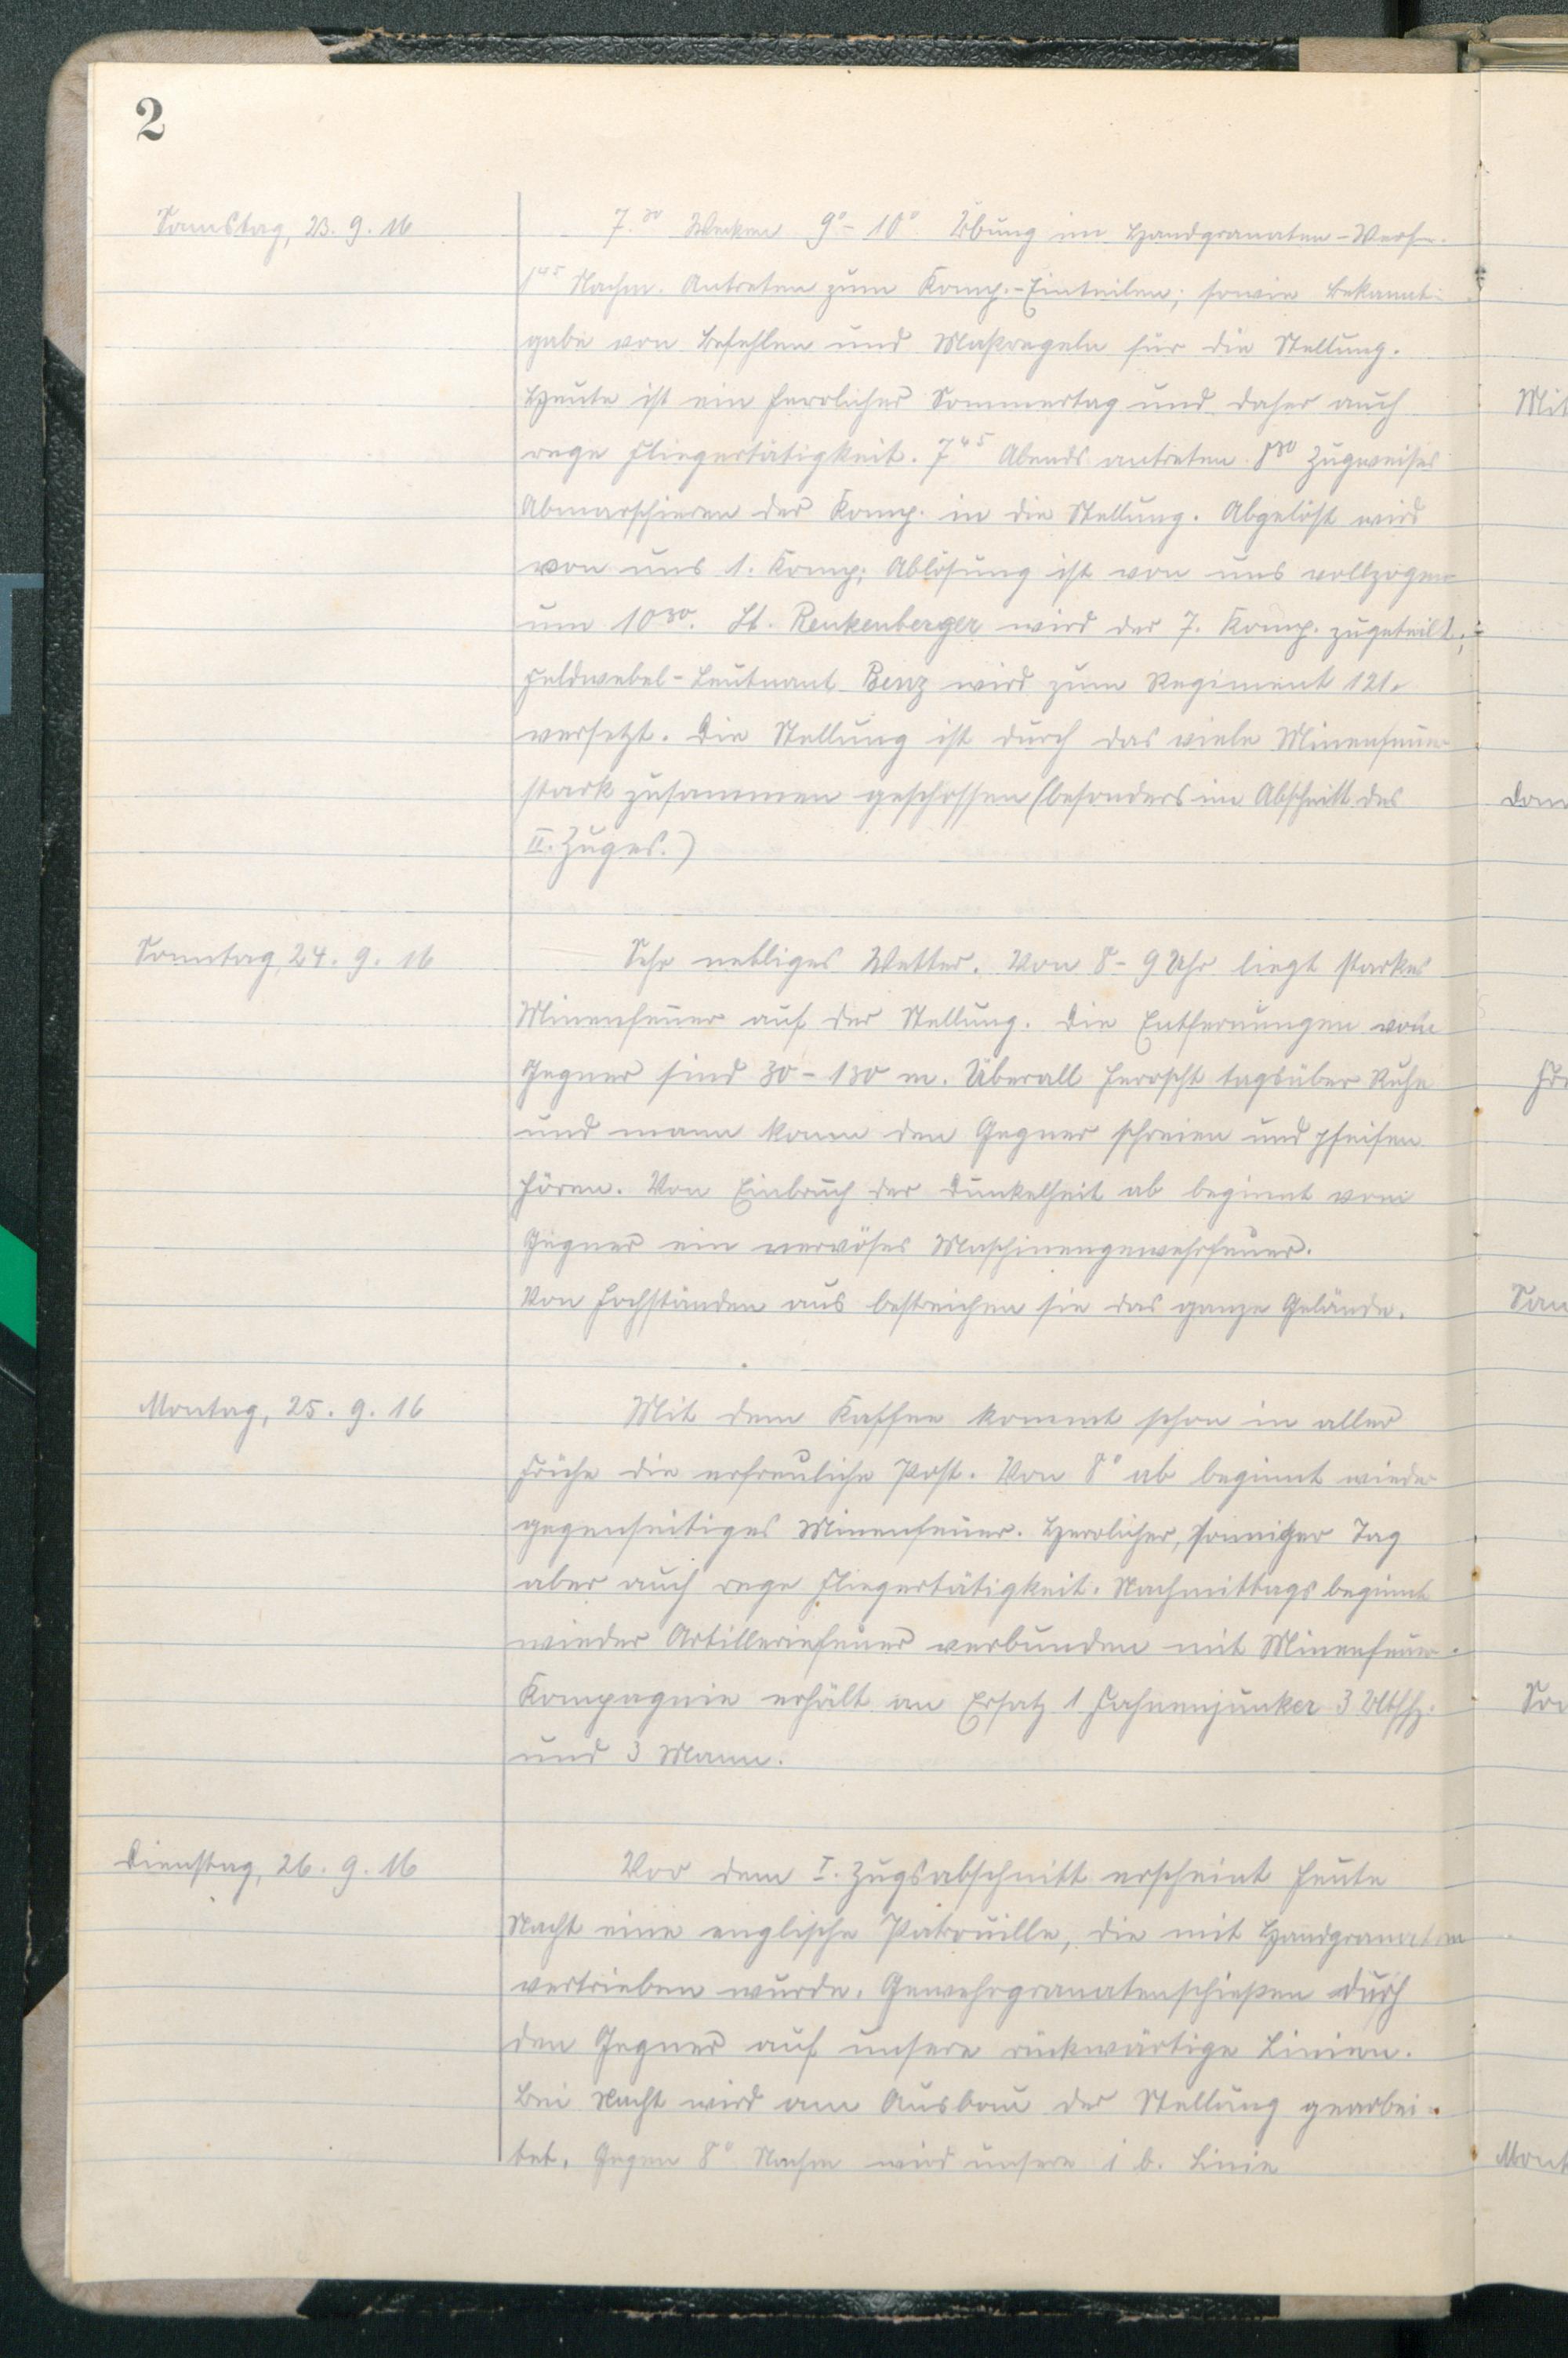 2
Samstag, 23. 9. 16
7.30 Wecken 9°- 10° Übung im Handgranaten-Werfen.
145 Nachm. Antreten zum Komp.-Einteilen; sowie Bekannt-
gabe von Befehlen und Maßregeln für die Stellung.
Heute ist ein herrlicher Sommertag und daher auch
rege Fliegertätigkeit. 745 Abends antreten 830 Zugweises
Abmarschieren der Komp. in die Stellung. Abgelöst wird
von uns 1. Komp; Ablösung ist von uns vollzogen
um 1030. Lt. Renkenberger wird der 7. Komp. zugeteilt;
Feldwebel-Leutnant Benz wird zum Regiment 121.
versetzt. Die Stellung ist durch das viele Minenfeuer
stark zusammen geschossen (besonders im Abschnitt des
II. Zuges.)
Sonntag, 24. 9. 16
Sehr nebliges Wetter. Von 8 - 9 Uhr liegt starkes
Minenfeuer auf der Stellung. Die Entfernungen vom
Gegner sind 30 - 130 m. Überall herrscht tagsüber Ruhe
und mann kann den Gegner schreien und pfeifen
hören. Von Einbruch der Dunkelheit ab beginnt vom
Gegner ein nervöses Maschinengewehrfeuer.
Von Hochständen aus bestreichen sie das ganze Gelände.
Montag, 25. 9. 16
Mit dem Kaffee kommt schon in aller
Frühe die erfreuliche Post. Von 8° ab beginnt wieder
gegenseitiges Minenfeuer. Herrlicher, sonniger Tag
aber auch rege Fliegertätigkeit. Nachmittags beginnt
wieder Artilleriefeuer verbunden mit Minenfeuer.
Kompagnie erhält an Ersatz 1 Fahnenjunker 3 Utffz.
und 3 Mann.
Dienstag, 26. 9. 16
Vor dem I. Zugsabschnitt erscheint heute
Nacht eine englische Patrouille, die mit Handgranaten
vertrieben wurde. Gewehrgranatenschießen durch
den Gegner auf unsere rückwärtige Linien.
Bei Nacht wird am Ausbau der Stellung gearbei-
tet. Gegen 8° Nachm wird unsere 1 b. Linie
Mit
Don
Fre
Sam
Son
Mont